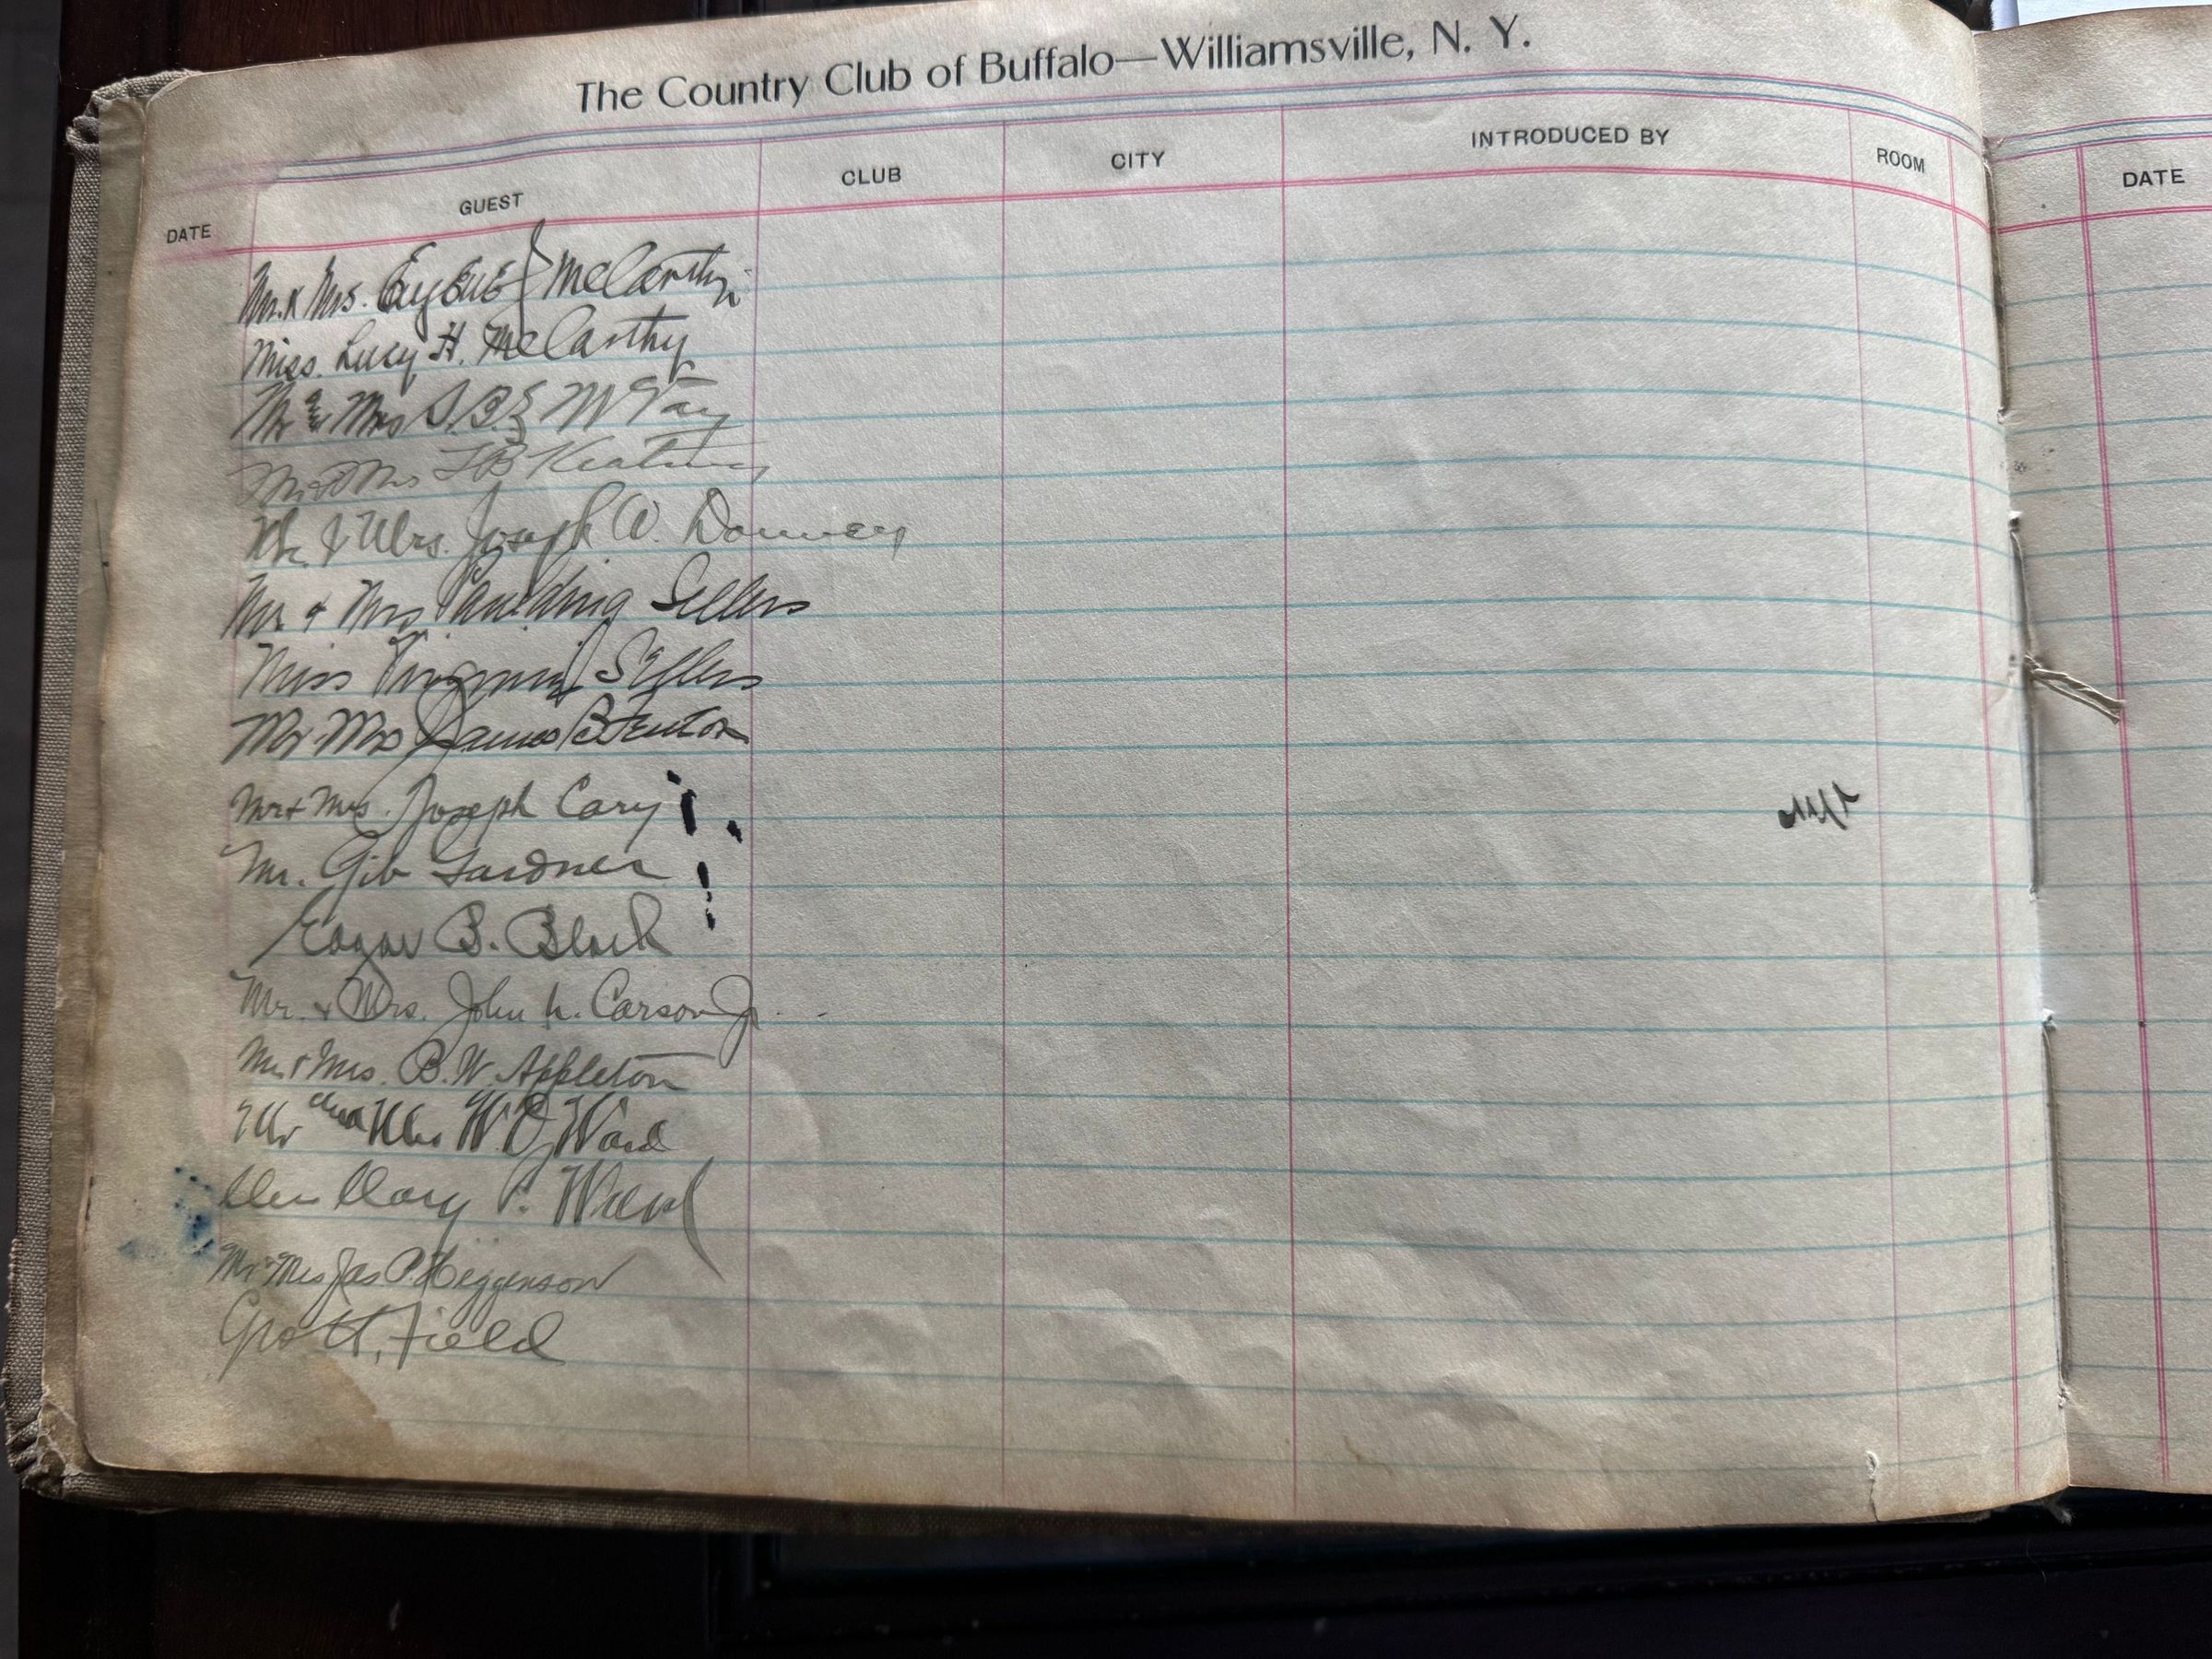 The Country Club of Buffalo—Williamsville, N. Y.
DATE GUEST CLUB CITY INTRODUCED BY ROOM DATE
Mr. & Mrs. Eugene McCarthy
Miss. Lucy H. McCarthy
Mr & Mrs S. B.
Mr & Mrs Keating
Mr. & Mrs. Joseph W.
Mr. & Mrs Paulding Sellers
Miss Virginia Sellers
Mr Mrs James B Fenton
Mr & Mrs. Joseph Cary
Mr. Gib Gardner
Edgar B. Black
Mr. & Mrs. John h. Carson Jr.
Mr & Mrs. B. W. Appleton
Mr and Mrs W. D. Ward
Mary P.
Mr Mrs Jas P. Higgenson
Geo H. Field